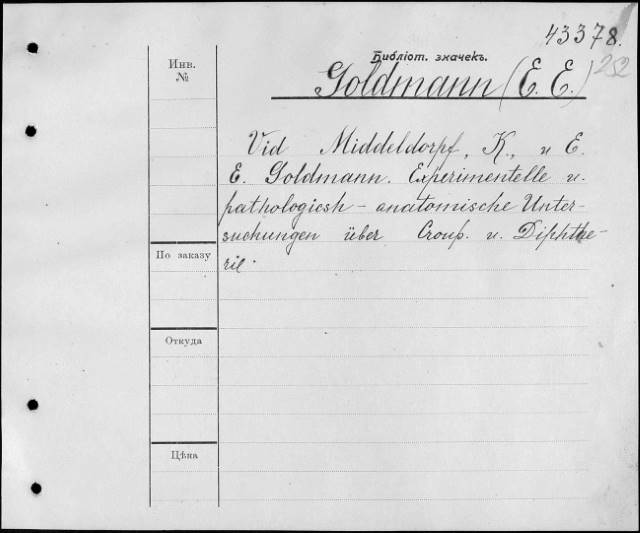 43378.
252
Библіот. значекъ.
Goldmann (E. E.)
Инв.
№
Vid Middeldorpf, K., u E.
E. Goldmann. Experimentelle u.
pathologicsh - anatomische Unter-
suchungen über Croup. u. Diphthe-
rie.
По заказу
Откуда
Цѣна